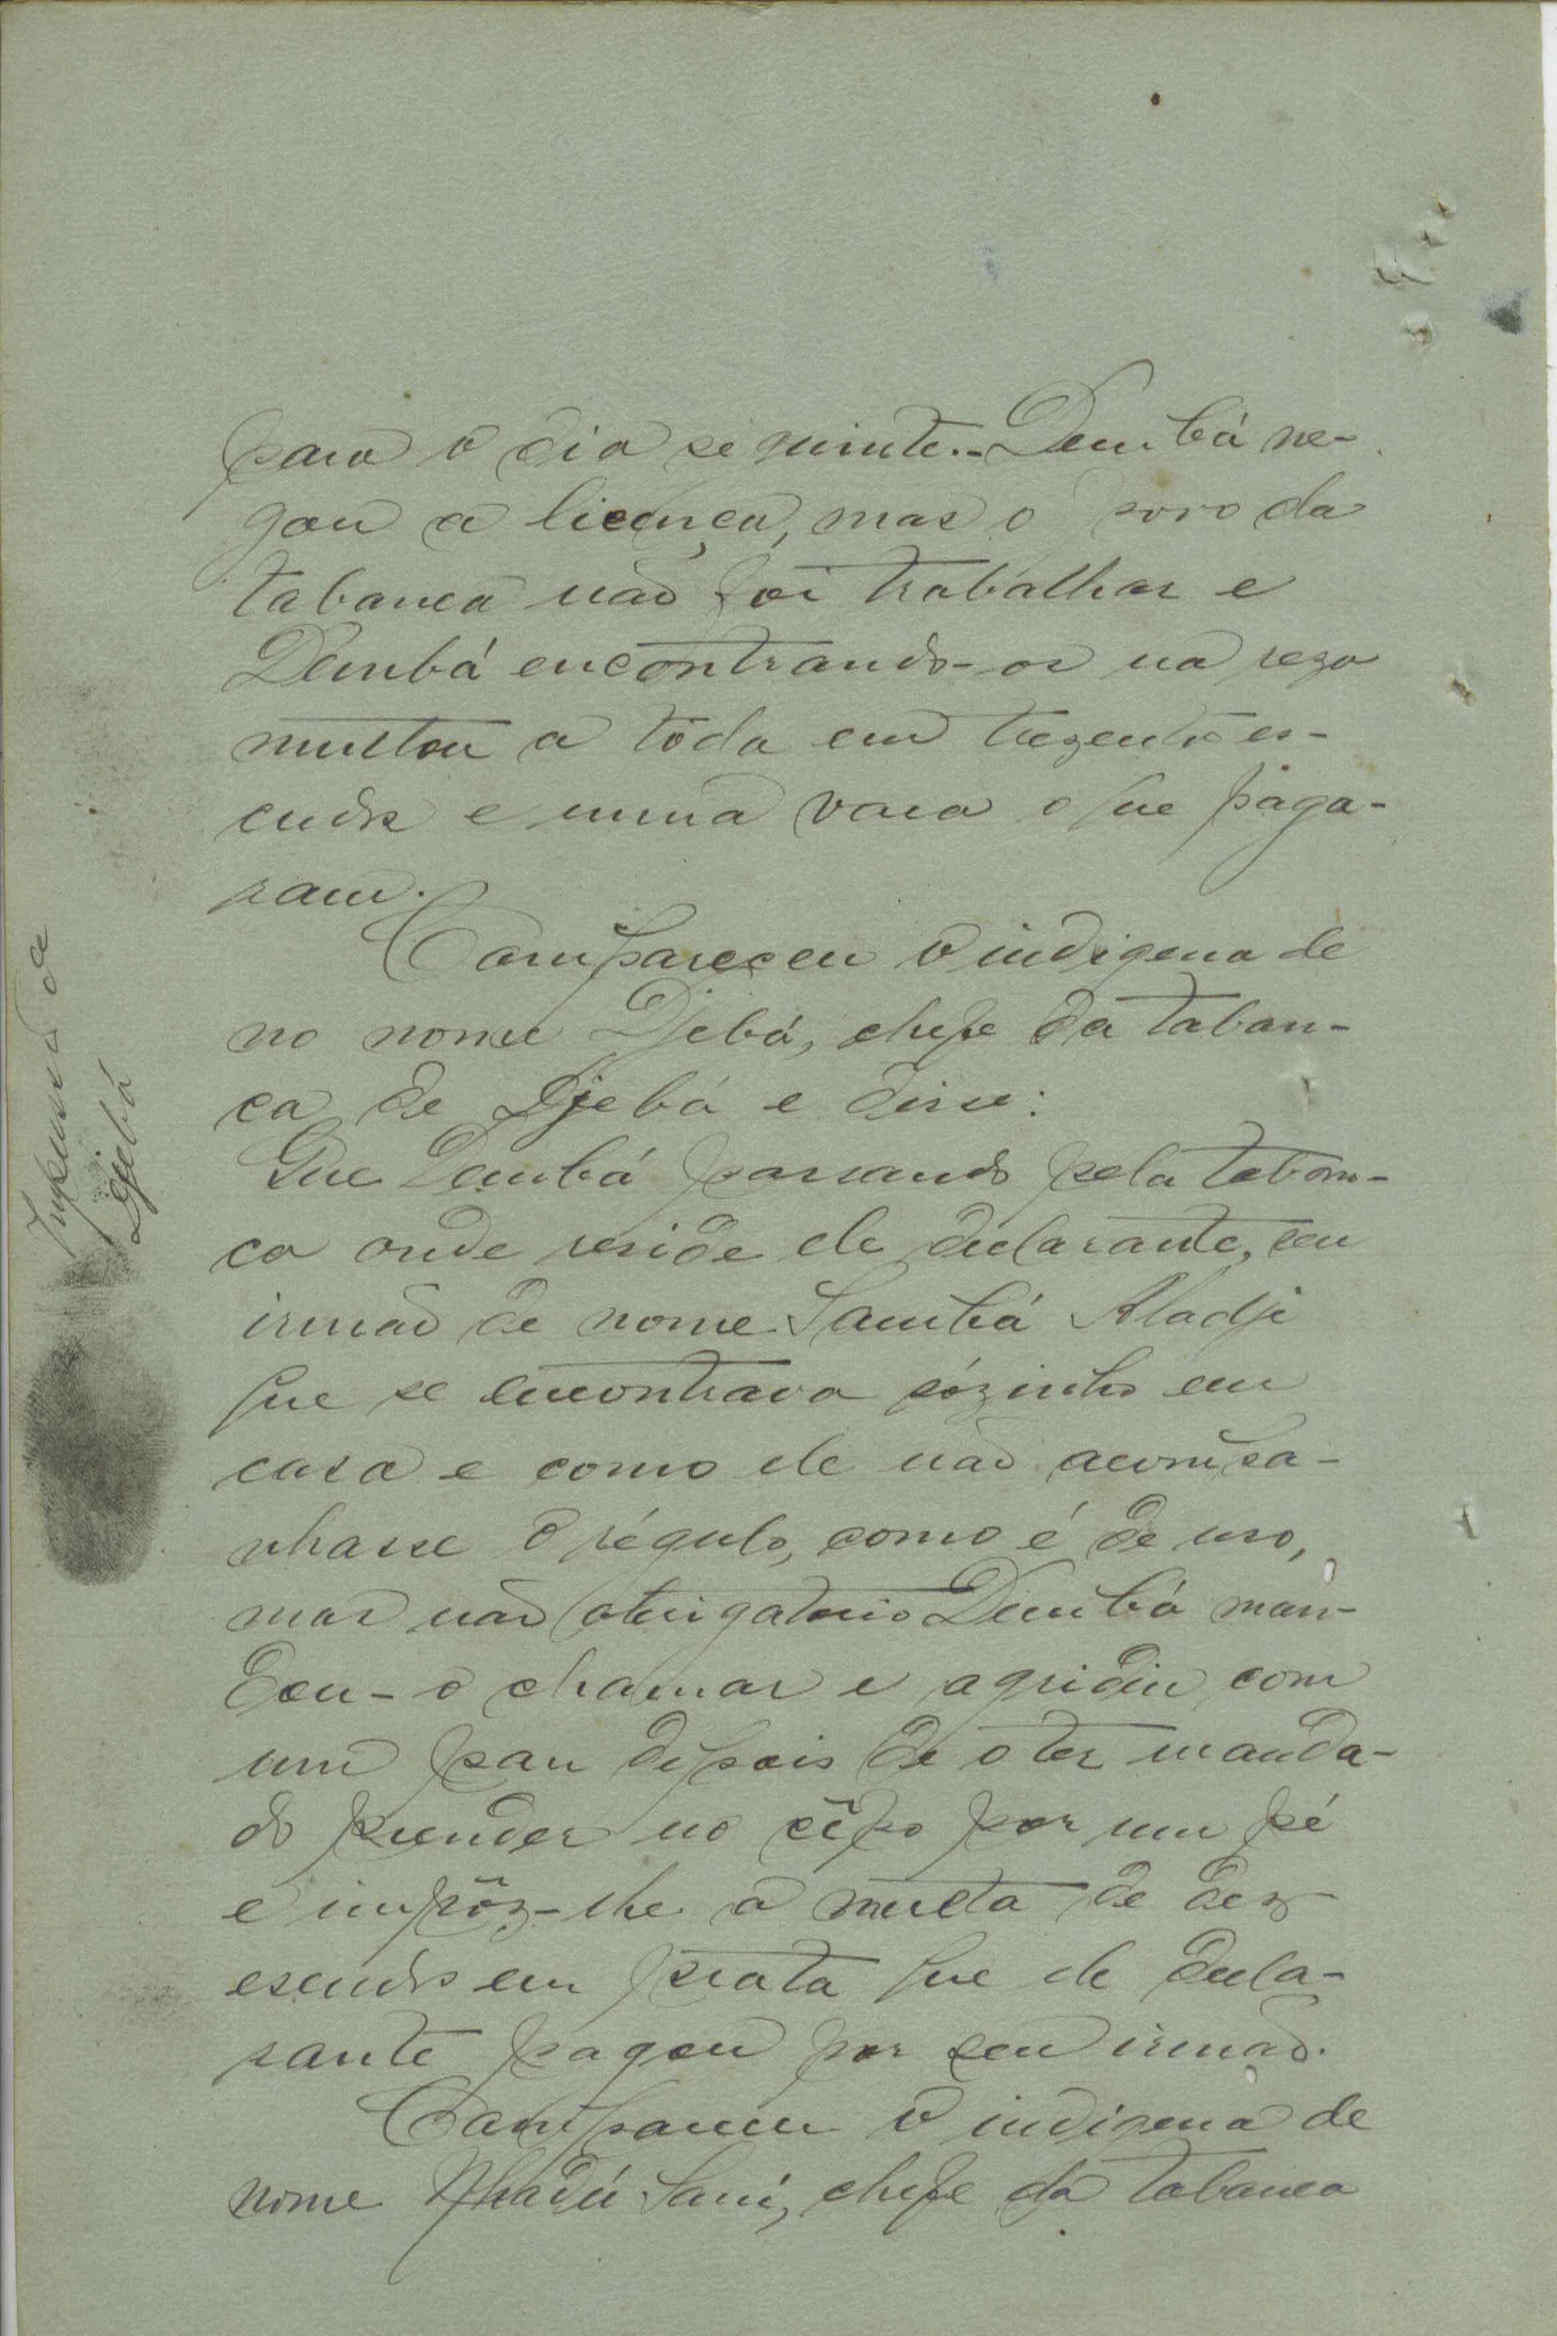 para o dia seguinte.- Dembá ne-
gou a licença, mas o povo da
tabanca não foi trabalhar e
Dembá encontrando-os na reza
multou a tôda em trezentos es-
cudos e uma vaca o que paga-
ram.
Compareceu o indigena de
no nome Djebá, chefe da taban-
ca de Djebá e disse:
Que Dembá passando pela taban-
ca onde reside ele declarante, seu
irmão de nome Sambá Aladji
que se encontrava sózinho em
casa e como ele não acompa-
nhasse o régulo, como é de uso,
mas não obrigatorio Dembá man-
dou-o chamar e agridiu com
um pau depois de o ter manda-
do prender no cêpo por um pé
e impôz-lhe a multa de dez
escudos em prata que ele decla-
rante pagou por seu irmão.
Compareceu o indigena de
nome Sani, chefe da tabanca
Impressão
Djebá